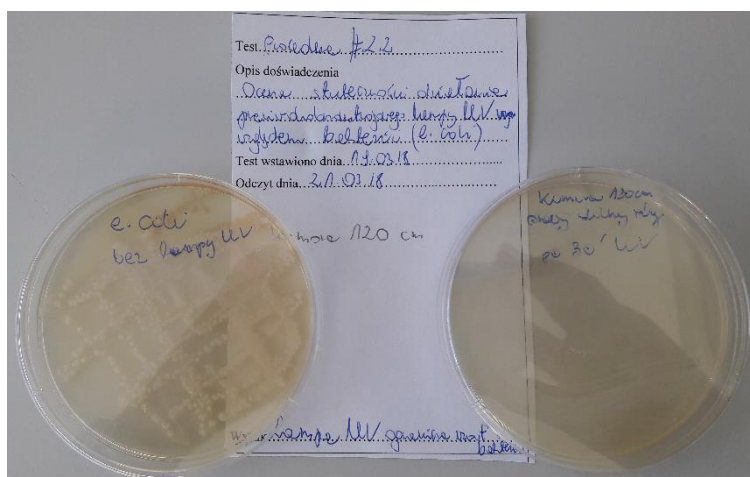 Test Procedura #2.2
Opis doświadczenia
Ocena skuteczności działania
przeciwdrobnoustrojowego lampy UV
względem bakterii (e. coli)
Test wstawiono dnia 19.03.18
Odczyt dnia 21.03.18
e. coli
bez lampy UV
komora 120 cm
Komora 120cm
po 30' UV
Lampa UV wzrost
bakterii